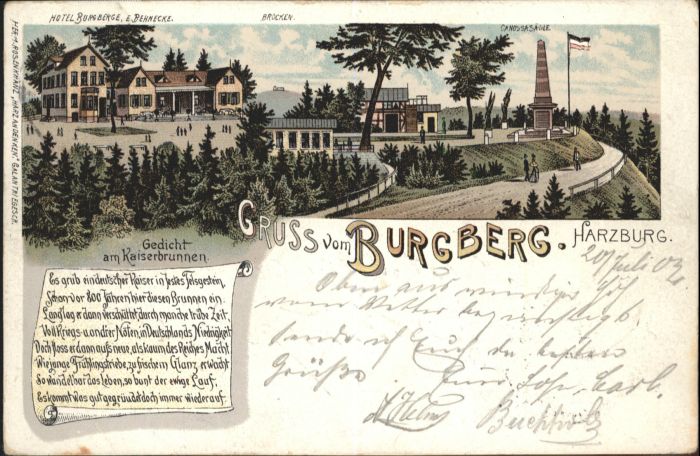 HOTEL BURGBERGE, E. BEHNECKE.
BROCKEN.
CANOSSASÄULE
GRUSS vom BURGBERG. HARZBURG.
Gedicht
am Kaiserbrunnen.
Es grub ein deutscher Kaiser in festes Felsgestein
Schon vor 800 Jahren hier diesen Brunnen ein.
Lang lag er dann verschüttet durch manche trübe Zeit
Voll Kriegs- u. andrer Noten, in Deutschlands Niedrigkeit
Doch floss er dann aufs neue, als kaum des Reiches Macht
Wie junge Frühlingstriebe, zu frischem Glanz erwacht
So wandelbar das Leben, so bunt der ewige Lauf.
Es kommt was gut gegründet doch immer wieder auf.
20/Juli 03
Oben aus
vom Wetter
sende ich Euch die besten
Grüße Euer Sohn Carl.